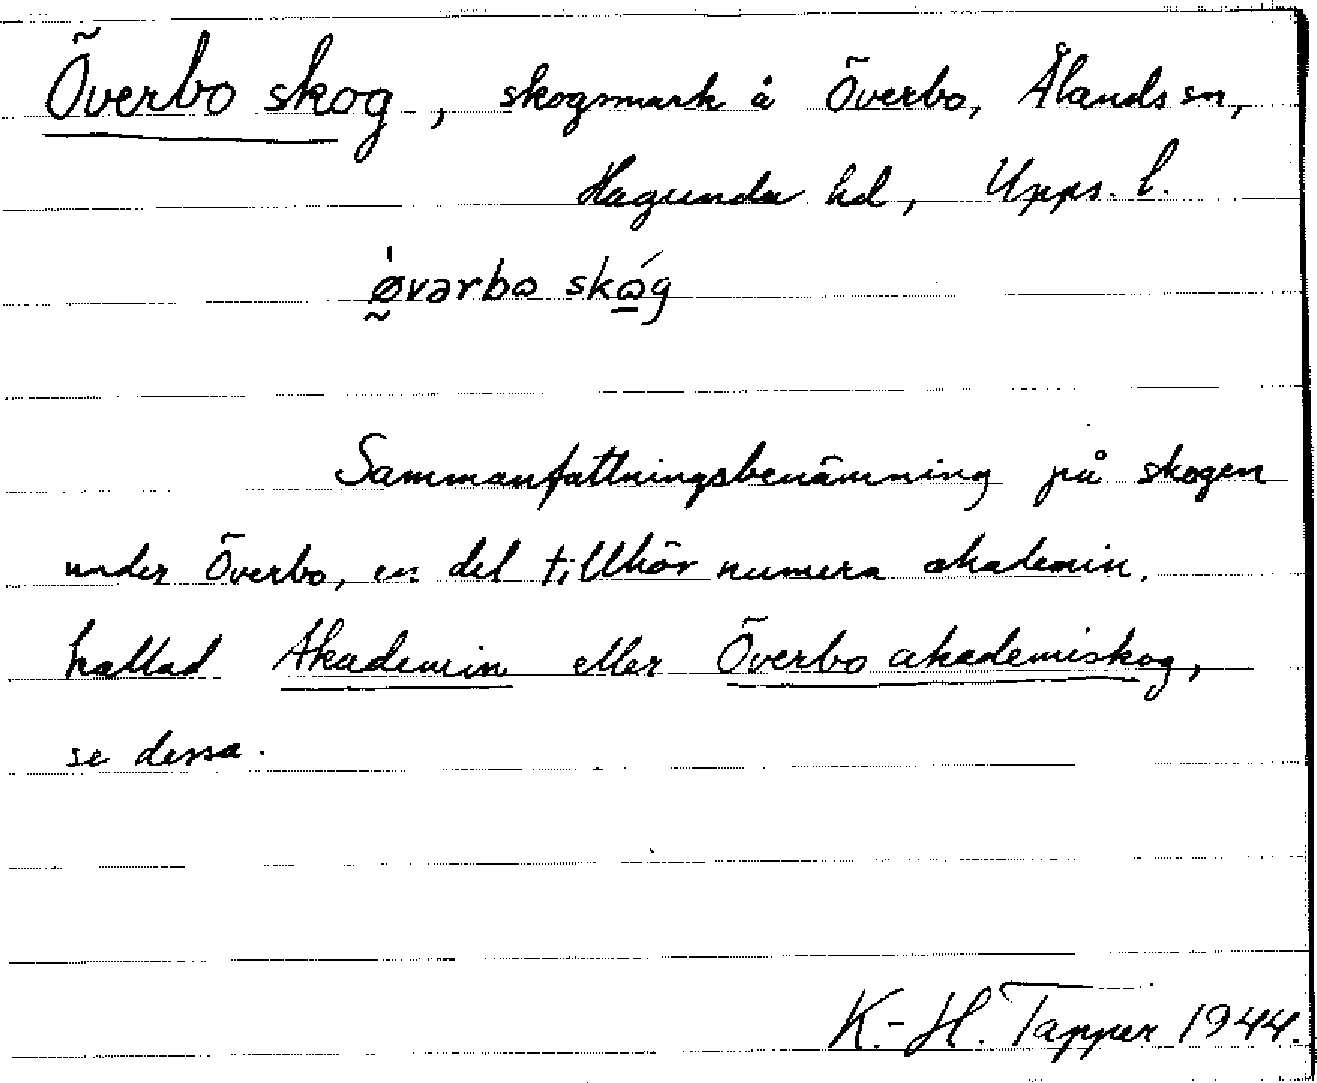 Överbo skog, skogsmark å Överbo, Ålands sn,
Hagunda hd, Upps. l.
øvərbω skώg
Sammanfattningsbenämning på skogen
under Överbo, en del tillhör numera akademin,
kallad Akademin eller Överbo akademiskog,
se dessa.
K.-H. Tapper 1944.